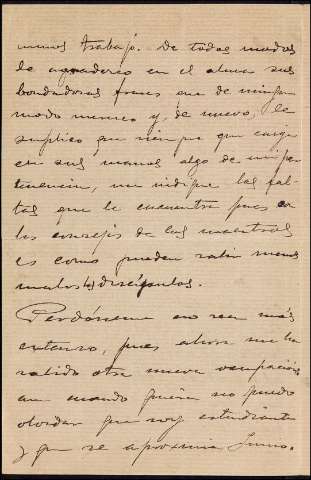 menos trabajo. De todos modos
le agradezco en el alma sus
bondadosas frases que de ningun
modo merezco y, de nuevo, le
suplico que siempre que caiga
en sus manos algo de mi per-
tenencia, me indique las fal-
tas que le encuentre pues con
los consejos de los maestros
es como pueden salir menos
malos los discípulos.
Perdóneme no sea más
extenso, pues ahora me ha
salido otra nueva ocupación
aun cuando quiera no puedo
olvidar que soy estudiante
y que se aproxima Junio.